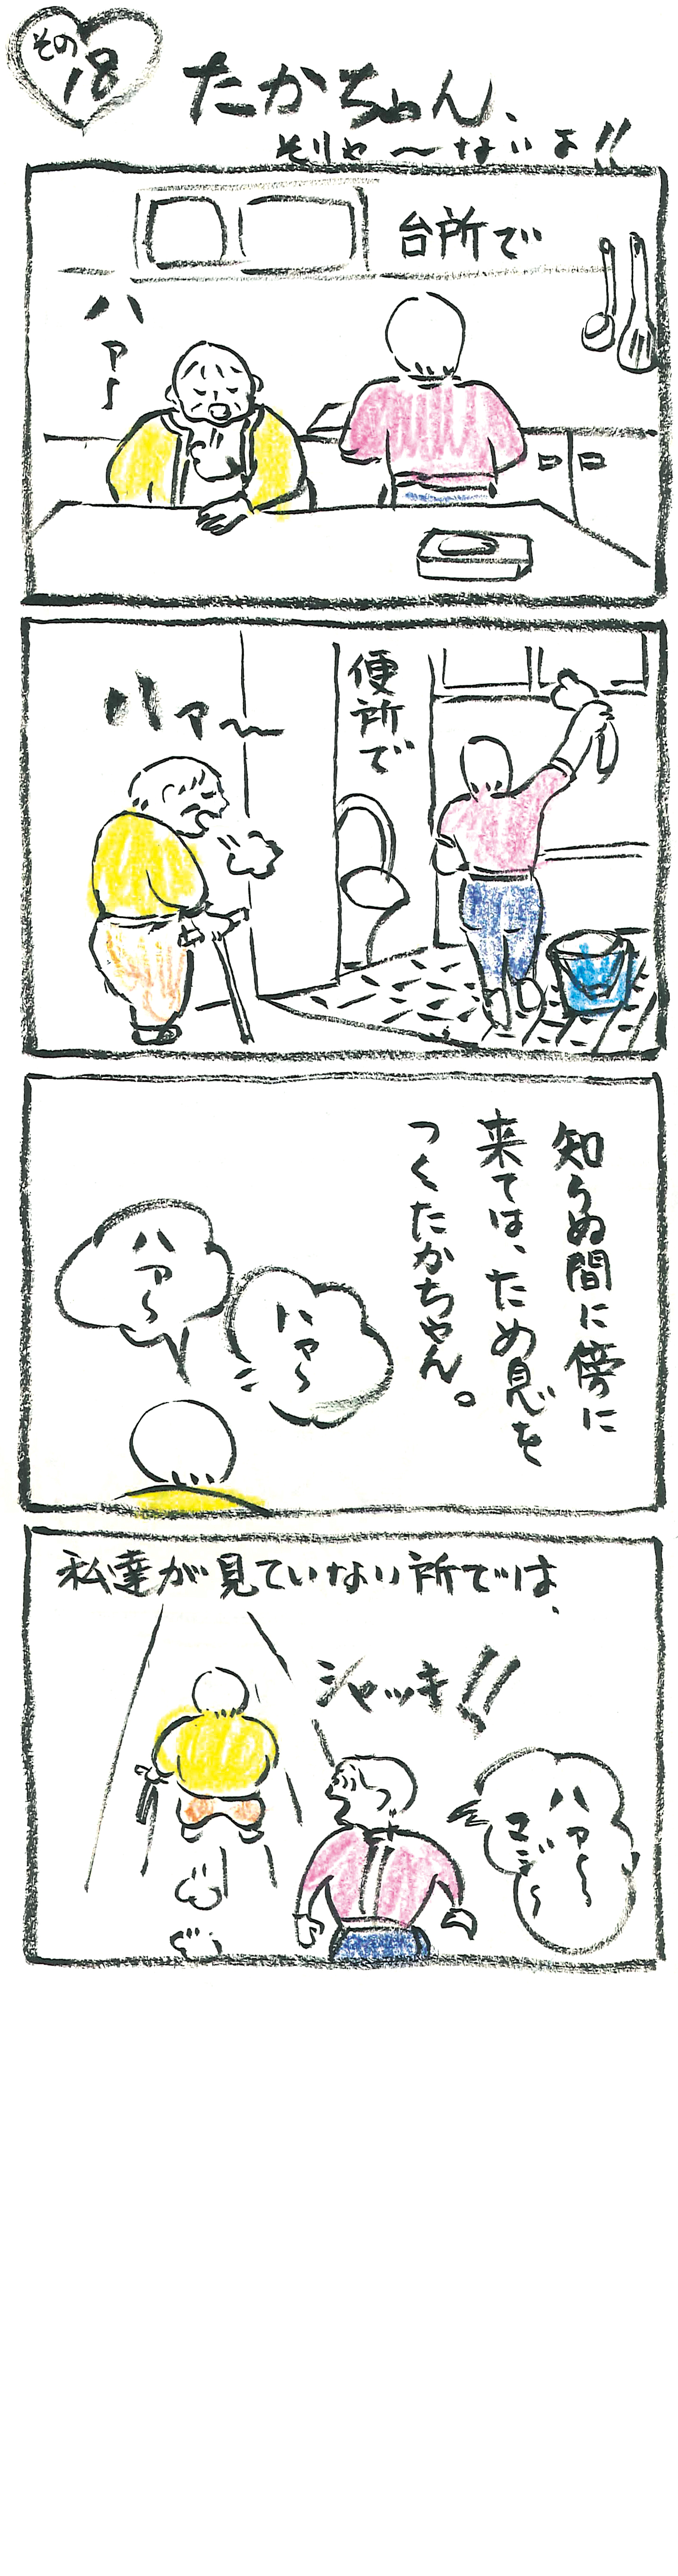 その
18
たかちゃん、
そりゃ〜ないよ!!
台所で
ハァ〜
便所で
ハァ〜
知らぬ間に傍に
来ては、ため息を
つくたかちゃん。
ハァ〜
ハァ〜
私達が見ていない所では、
シャッキ!!
ハァ〜
マジ〜